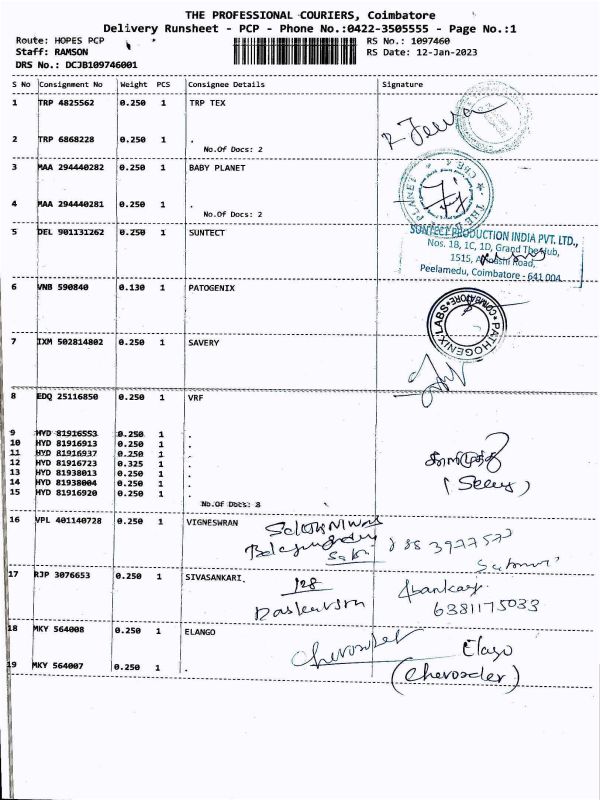 THE PROFESSIONAL COURIERS, Coimbatore
Delivery Runsheet - PCP - Phone No.:0422-3505555 - Page No.:1
Route: HOPES PCP RS No.: 1097460
Staff: RAMSON RS Date: 12-Jan-2023
DRS No.: DCJB109746001
S No Consignment No Weight PCS Consignee Details Signature
1 TRP 4825562 0.250 1 TRP TEX
2 TRP 6868228 0.250 1 .
No.Of Docs: 2
3 MAA 294440282 0.250 1 BABY PLANET
4 MAA 294440281 0.250 1 .
No.Of Docs: 2
5 DEL 901131262 0.250 1 SUNTECT
SUNTECT PRODUCTION INDIA PVT. LTD.,
Nos. 1B, 1C, 1D, Grand The Hub,
1515, Road,
Peelamedu, Coimbatore - 641 004
6 VNB 590840 0.130 1 PATOGENIX
PATHOGENIX LABS * COIMBATORE *
7 IXM 502814802 0.250 1 SAVERY
8 EDQ 25116850 0.250 1 VRF
9 HYD 81916553 0.250 1 .
10 HYD 81916913 0.250 1 .
11 HYD 81916937 0.250 1 .
12 HYD 81916723 0.325 1 .
13 HYD 81938013 0.250 1 .
14 HYD 81938004 0.250 1 .
15 HYD 81916920 0.250 1 .
No.Of Docs: 8
16 VPL 401140728 0.250 1 VIGNESWRAN
17 RJP 3076653 0.250 1 SIVASANKARI.
128
6381175033
18 MKY 564008 0.250 1 ELANGO
Elago
19 MKY 564007 0.250 1 .